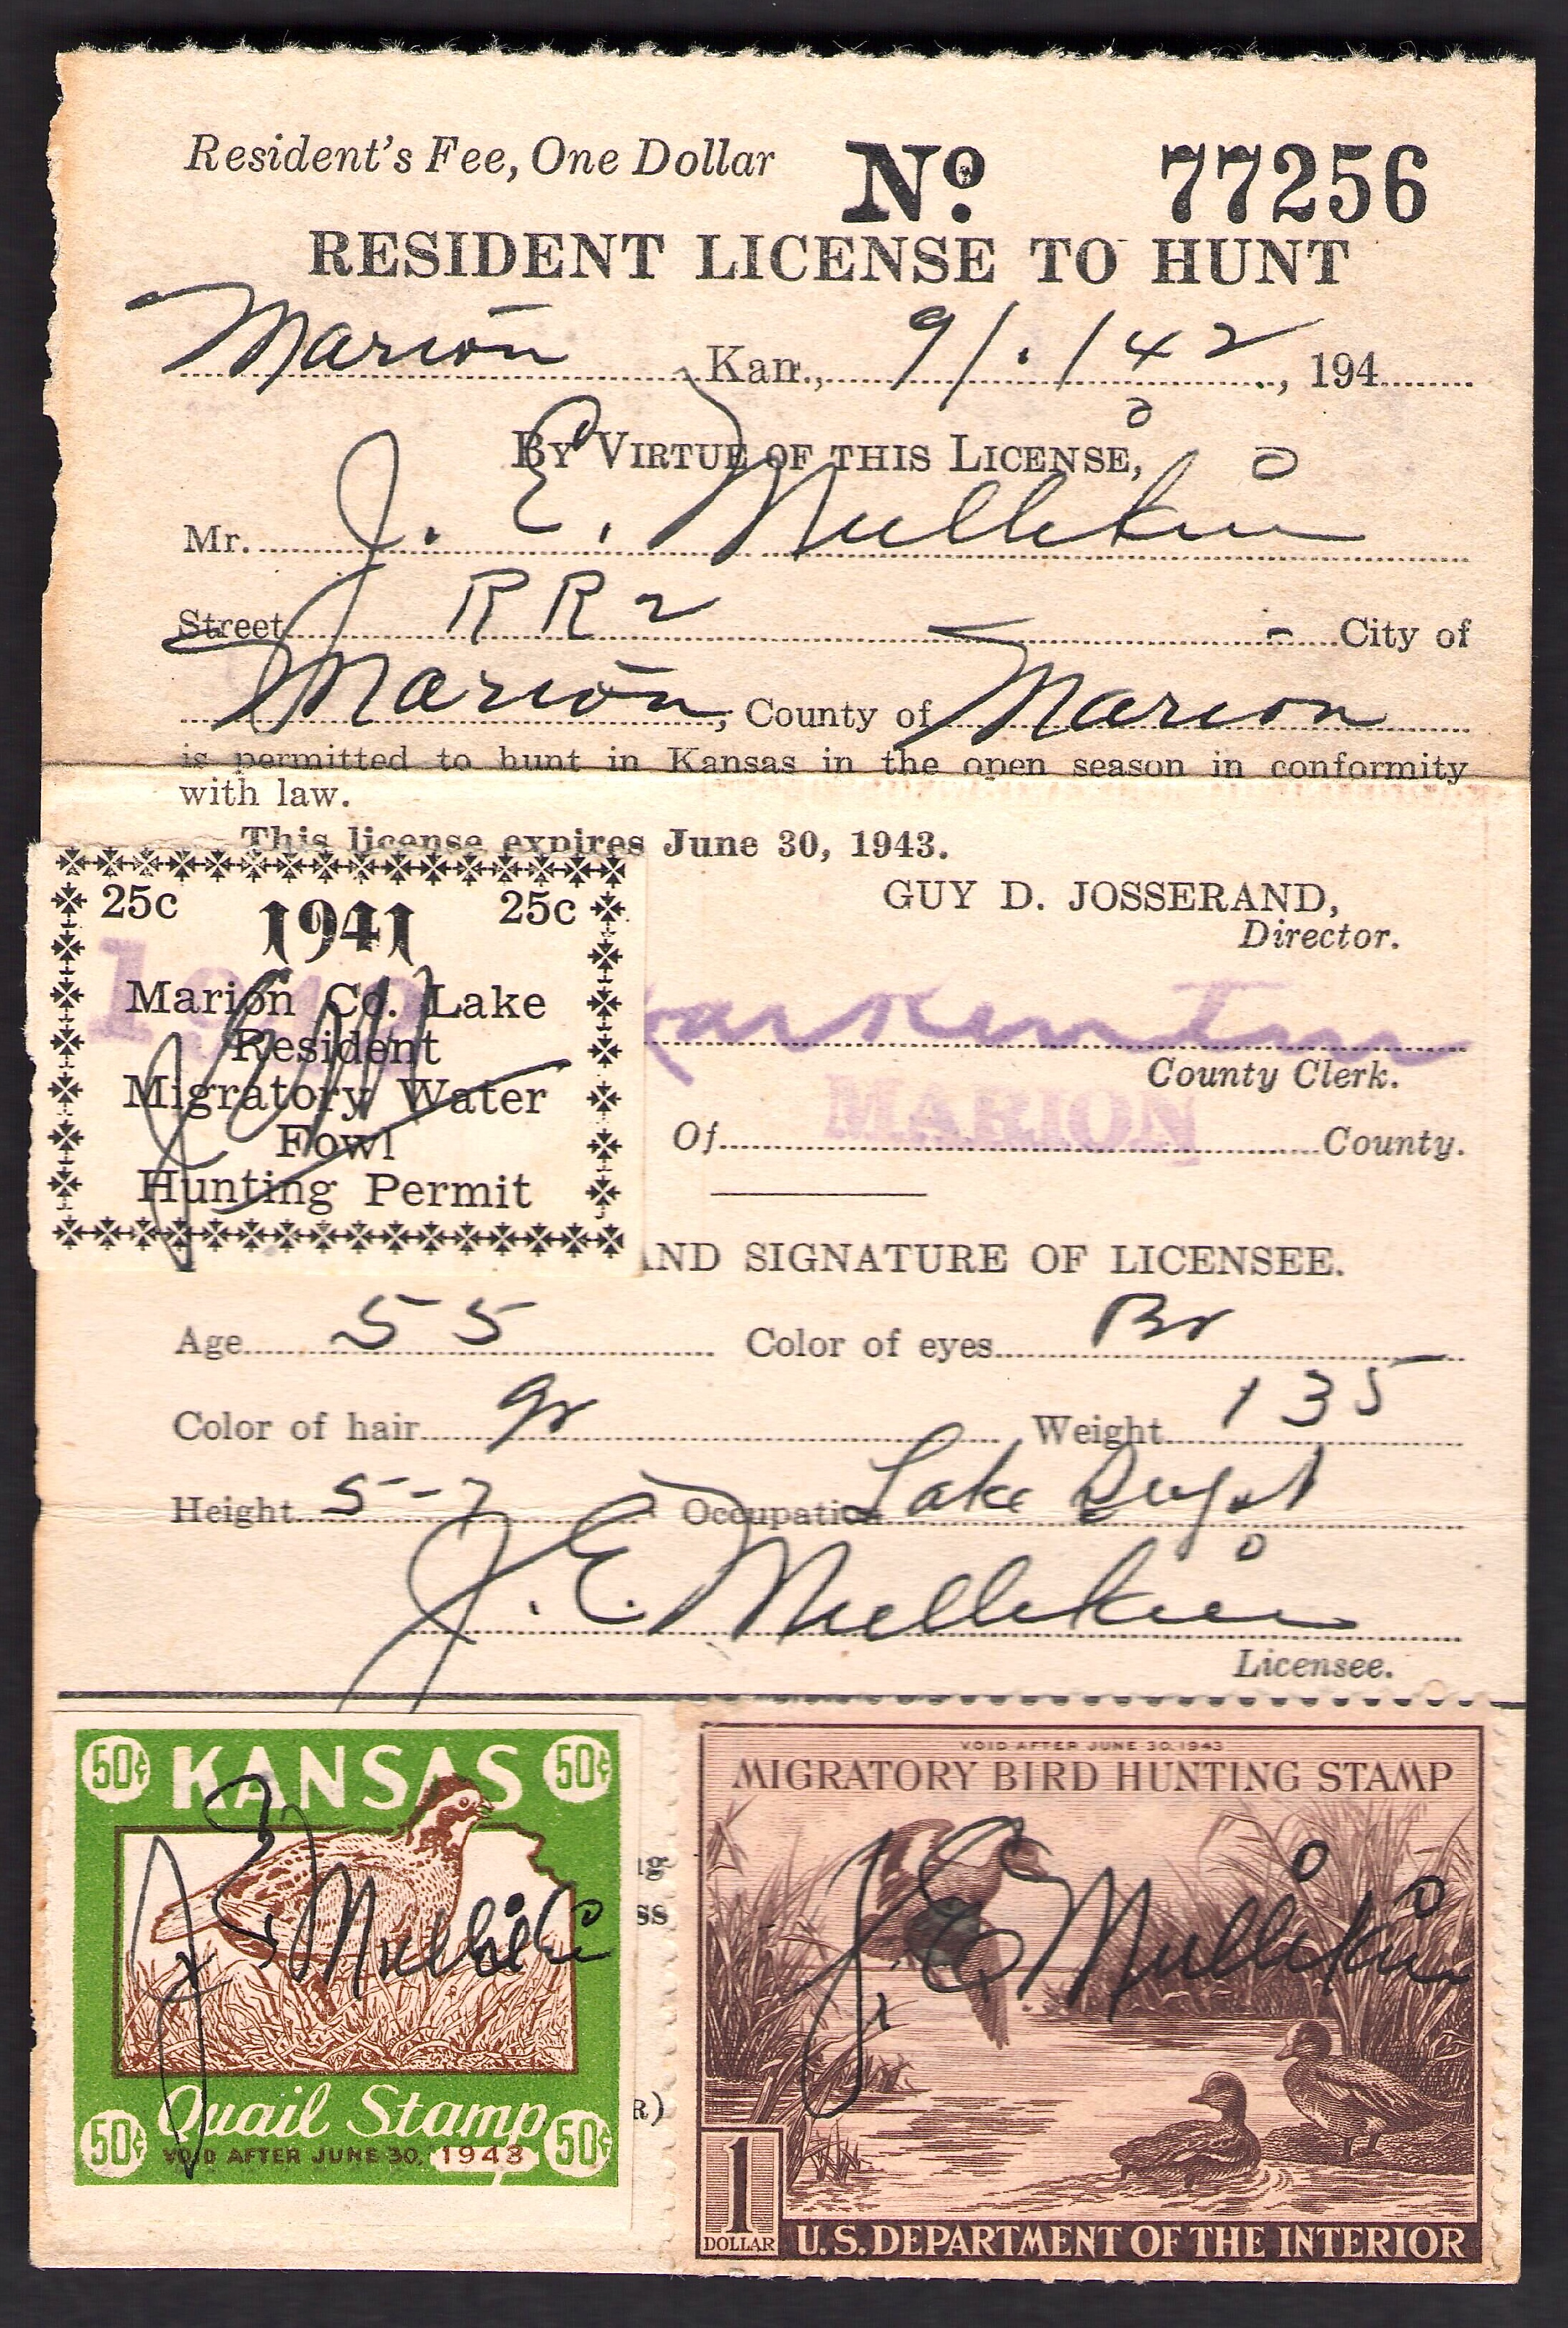 Resident's Fee, One Dollar No. 77256
RESIDENT LICENSE TO HUNT
Marion Kan., 9/1/42, 194
BY VIRTUE OF THIS LICENSE,
Mr. J. E. Mullikin
Street RR2 City of
Marion, County of Marion
is permitted to hunt in Kansas in the open season in conformity
with law.
This license expires June 30, 1943.
GUY D. JOSSERAND,
Director.
25c 1941 25c
Marion Co. Lake
Resident
Migratory Water
Fowl
Hunting Permit
County Clerk.
MARION
Of County.
AND SIGNATURE OF LICENSEE.
Age 55 Color of eyes Br
Color of hair gr Weight 135
Height 5-7 Occupation Lake Supt
J. E. Mullikin
Licensee.
50¢ KANSAS 50¢
J. E. Mullikin
50¢ Quail Stamp 50¢
VOID AFTER JUNE 30, 1943
ig
ss
R)
VOID AFTER JUNE 30, 1943
MIGRATORY BIRD HUNTING STAMP
J. E. Mullikin
1 DOLLAR
U.S. DEPARTMENT OF THE INTERIOR